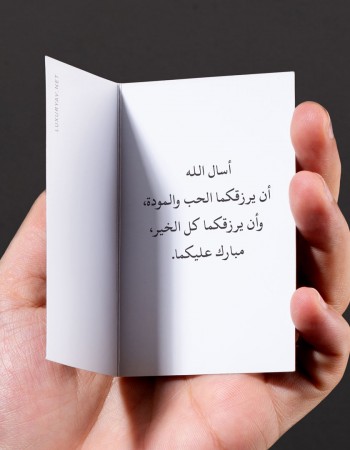 أسال الله
أن يرزقكما الحب والمودة،
وأن يرزقكما كل الخير،
مبارك عليكما.
LUXURYAY.NET